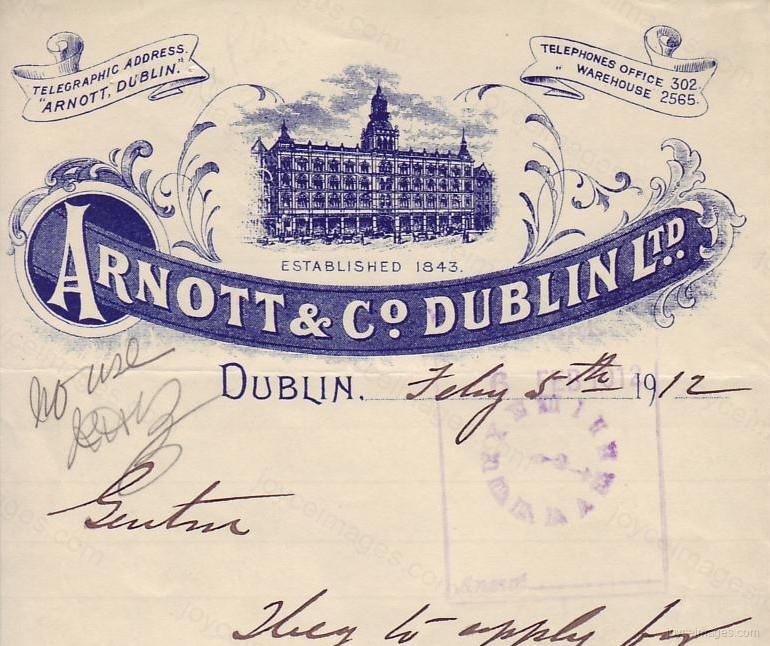 TELEGRAPHIC ADDRESS.
"ARNOTT, DUBLIN."
TELEPHONES OFFICE 302.
" WAREHOUSE 2565.
ESTABLISHED 1843.
ARNOTT & Co DUBLIN LTD.
DUBLIN. Feby 5th 1912
6 FEB 1912
no use
Gentm
to apply for
joyceimages.com